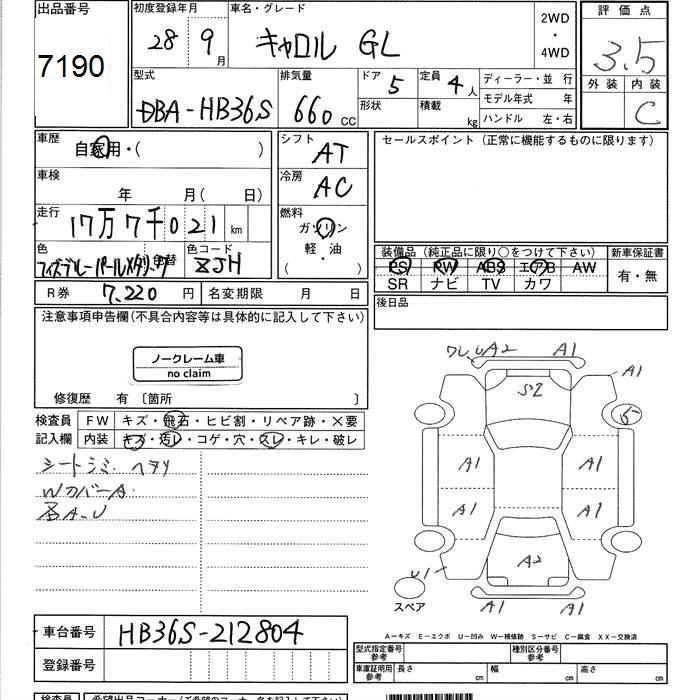 出品番号
7190
初度登録年月
28 9月
車名・グレード
キャロル GL
2WD
・
4WD
評価点
3.5
外装 内装
C
型式
DBA-HB36S
排気量
660 CC
ドア 5
形状
定員 4人
積載 kg
ディーラー・並 行
モデル年式 年
ハンドル 左・右
車歴
自家用・( )
シフト
AT
セールスポイント (正常に機能するものに限ります)
車検
年 月( 日)
冷房
AC
走行
17万7千021 km
燃料
ガソリン
軽・油
( )
色
替
色コード
ZJH
装備品 (純正品に限り○をつけて下さい)
PS PW ABS エアB AW
SR ナビ TV カワ
新車保証書
有・無
R券 7,220 円
名変期限 月 日
後日品
注意事項申告欄(不具合内容等は具体的に記入して下さい)
ノークレーム車
no claim
修復歴 有 〔箇所 〕
検査員
記入欄
FW キズ・飛石・ヒビ割・リペア跡・×要
内装 キズ・汚レ・コゲ・穴・スレ・キレ・破レ
シートシミ ヘタリ
WカバーA
A-U
ワレ U A2 A1
A1
S2
5
A1 A1
A1 A1
A2
U1
A1 A1
スペア
車台番号 HB36S-212804
登録番号
A-キズ E-エクボ U-凹み W-補修跡 S-サビ C-腐食 XX-交換済
型式指定番号
参考
種別区分番号
参考
車庫証明用
参考
長さ cm 幅 cm 高さ cm
検査員
希望出品コーナー(ご希望のコーナー名を記入して下さい)